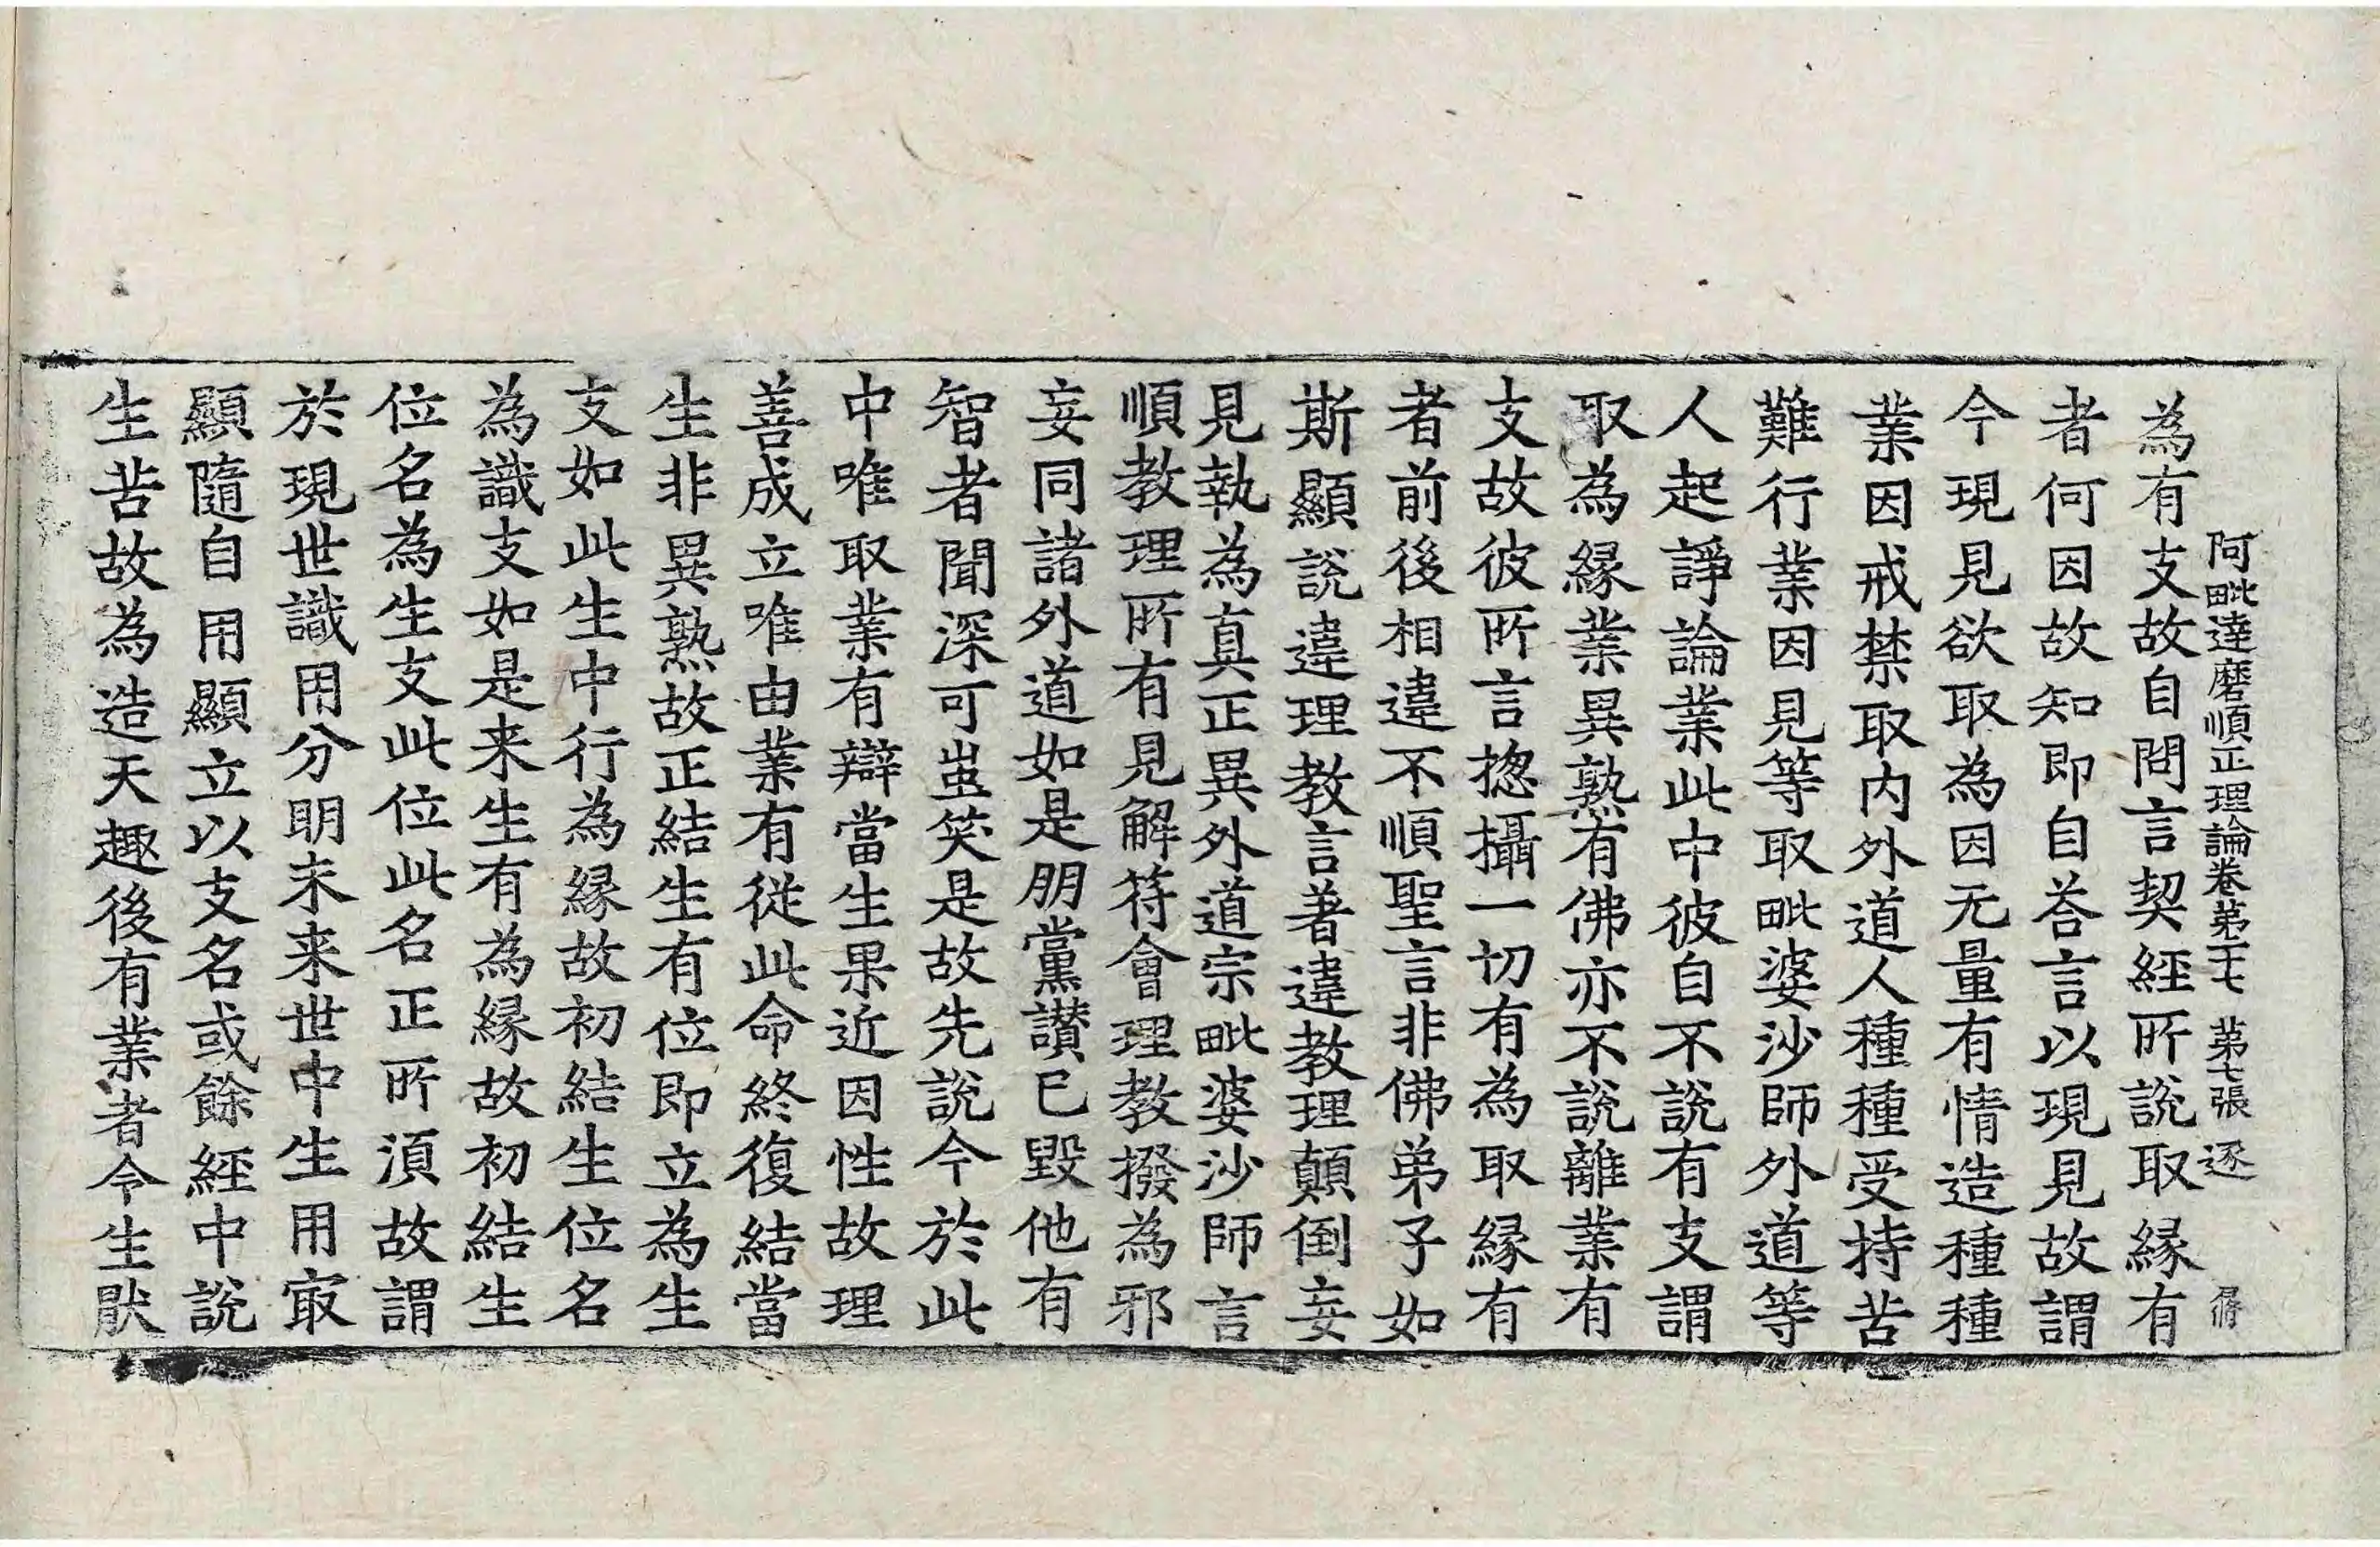 阿毗達磨順正理論卷第二十七 第七張 逐
為有支故自問言契經所說取縁有
者何因故知即自荅言以現見故謂
今現見欲取為因无量有情造種種
業因戒禁取内外道人種種受持苦
難行業因見等取毗婆沙師外道等
人起諍論業此中彼自不說有支謂
取為縁業異熟有佛亦不說離業有
支故彼所言揔攝一切有為取縁有
者前後相違不順聖言非佛弟子如
斯顯說違理教言著違教理顛倒妄
見執為真正異外道宗毗婆沙師言
順教理所有見解符會理教撥為邪
妄同諸外道如是朋黨讃巳毀他有
智者聞深可蚩笑是故先說今於此
中唯取業有辯當生果近因性故理
善成立唯由業有從此命終復結當
生非異熟故正結生有位即立為生
支如此生中行為縁故初結生位名
為識支如是来生有為縁故初結生
位名為生支此位此名正所湏故謂
於現世識用分明未来世中生用㝡
顯隨自用顯立以支名或餘經中說
生苦故為造天趣後有業者令生猒